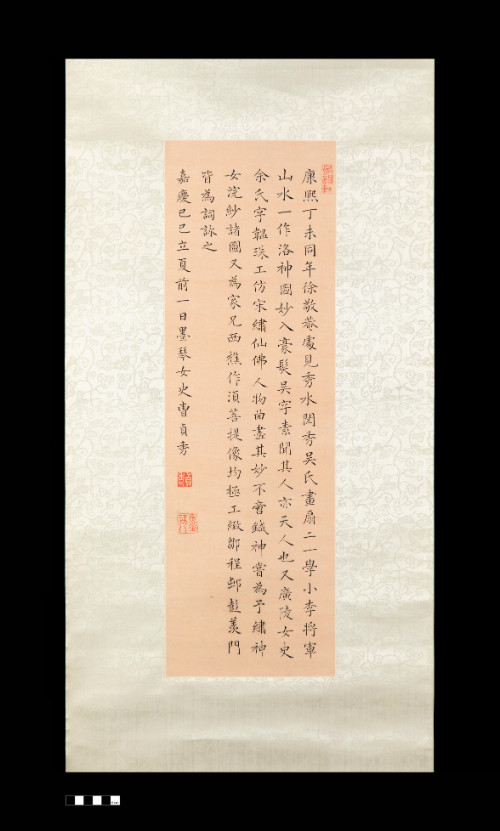 康熙丁未同年徐敬菴處見秀水閨秀吳氏畫扇二一學小李將軍
山水一作洛神圖妙入豪髮吳字素聞其人亦天人也又廣陵女史
余氏字韞珠工仿宋繡仙佛人物曲盡其妙不啻鍼神嘗為予繡神
女浣紗諸圖又為家兄西樵作須菩提像均極工緻鄒程邨彭羨門
皆為詞詠之
嘉慶己巳立夏前一日墨琴女史曹貞秀